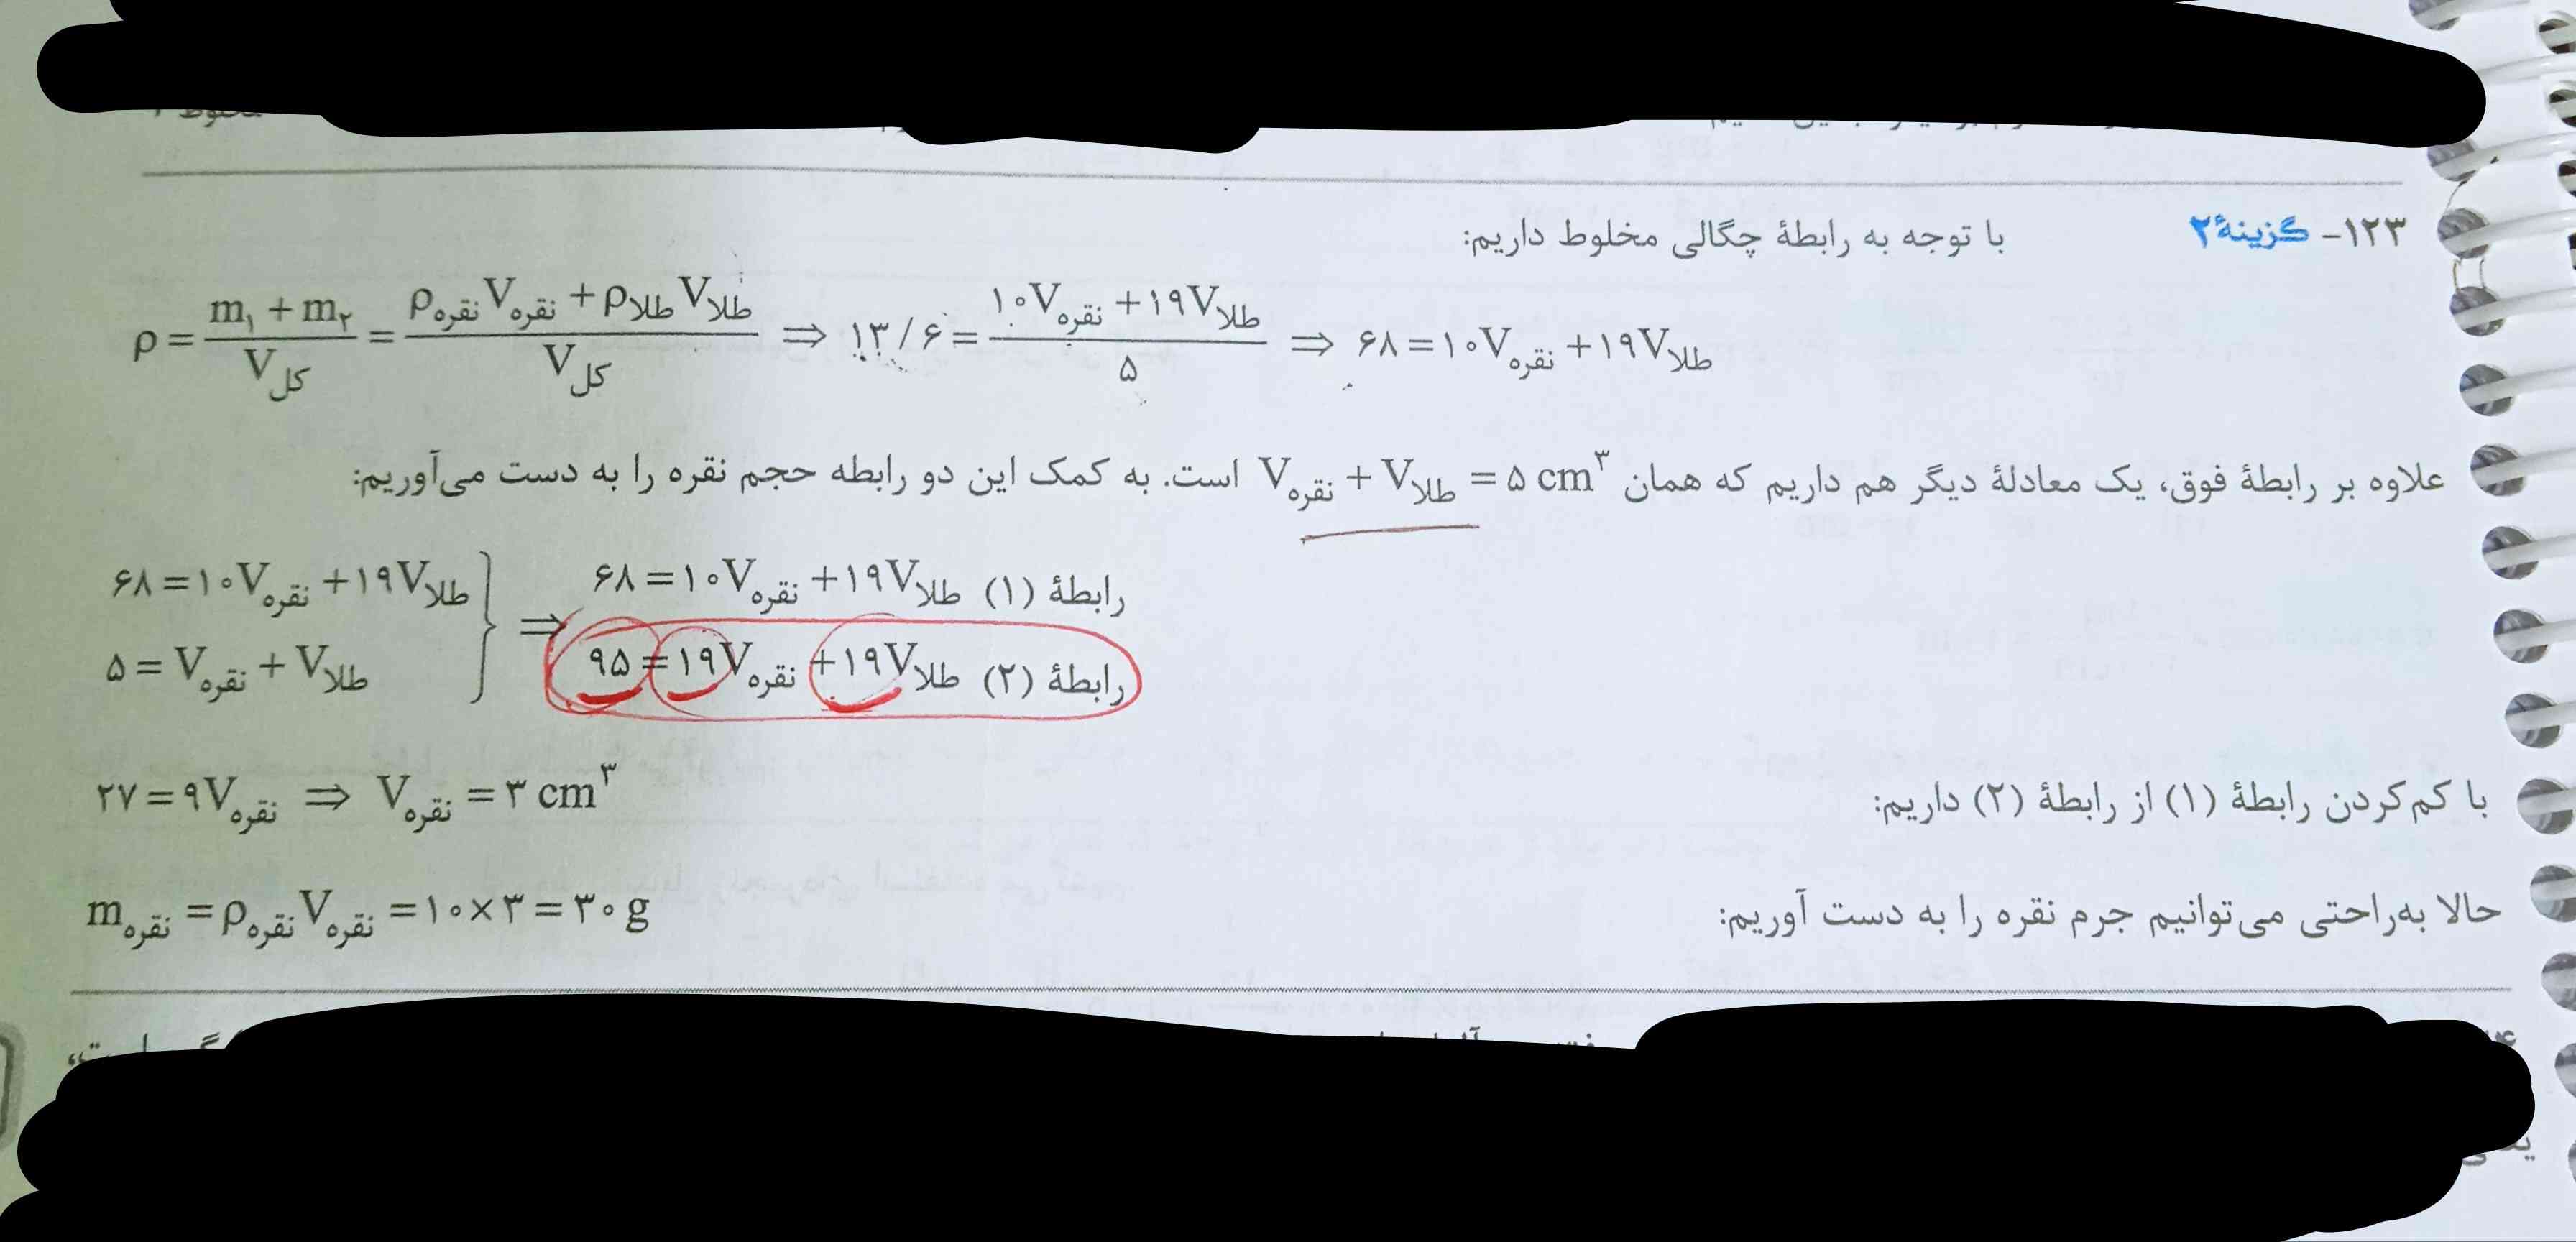 ۱۲۳- گزینهٔ ۲ با توجه به رابطهٔ چگالی مخلوط داریم:
ρ = (m₁ + m₂) / V کل = (ρ نقره V نقره + ρ طلا V طلا) / V کل ⇒ ۱۳/۶ = (۱۰V نقره + ۱۹V طلا) / ۵ ⇒ ۶۸ = ۱۰V نقره + ۱۹V طلا
علاوه بر رابطهٔ فوق، یک معادلهٔ دیگر هم داریم که همان V نقره + V طلا = ۵ cm³ است. به کمک این دو رابطه حجم نقره را به دست می‌آوریم:
۶۸ = ۱۰V نقره + ۱۹V طلا } ⇒ ۶۸ = ۱۰V نقره + ۱۹V طلا رابطهٔ (۱)
۵ = V نقره + V طلا } ۹۵ = ۱۹V نقره + ۱۹V طلا رابطهٔ (۲)
با کم کردن رابطهٔ (۱) از رابطهٔ (۲) داریم: ۲۷ = ۹V نقره ⇒ V نقره = ۳ cm³
حالا به‌راحتی می‌توانیم جرم نقره را به دست آوریم: m نقره = ρ نقره V نقره = ۱۰×۳ = ۳۰ g